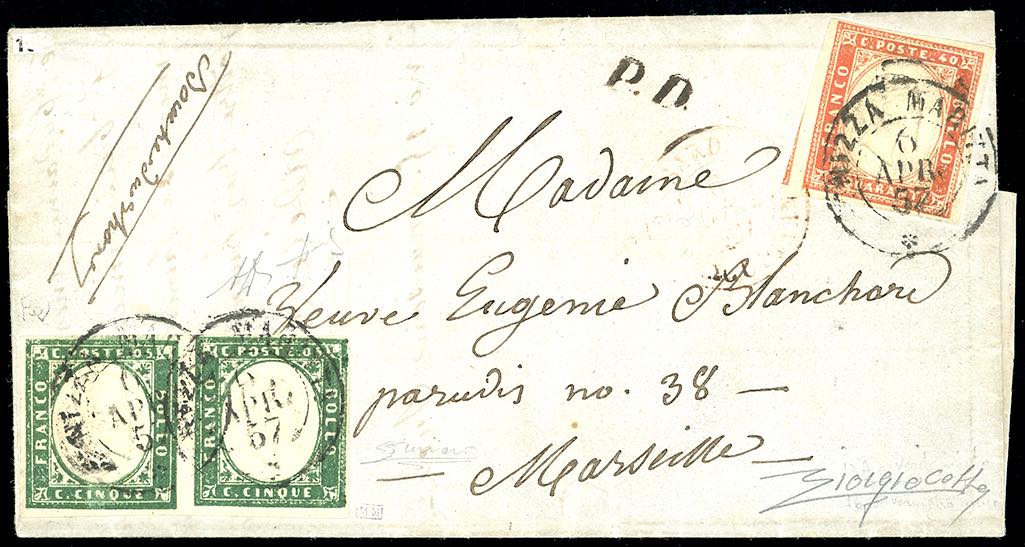 1.
P.D.
C. POSTE. 40
FRANCO
BOLLO
NIZZA MARITTA
6
APR.
57
Madame
Veuve Eugenie Blanchard
paradis no. 38 —
— Marseille —
NIZZA MAR
6
APR
57
NIZZA MAR
6
APR.
57
C. POSTE. 05
FRANCO
BOLLO
C. CINQUE
C. POSTE. 05
FRANCO
BOLLO
C. CINQUE
GiorgioColla